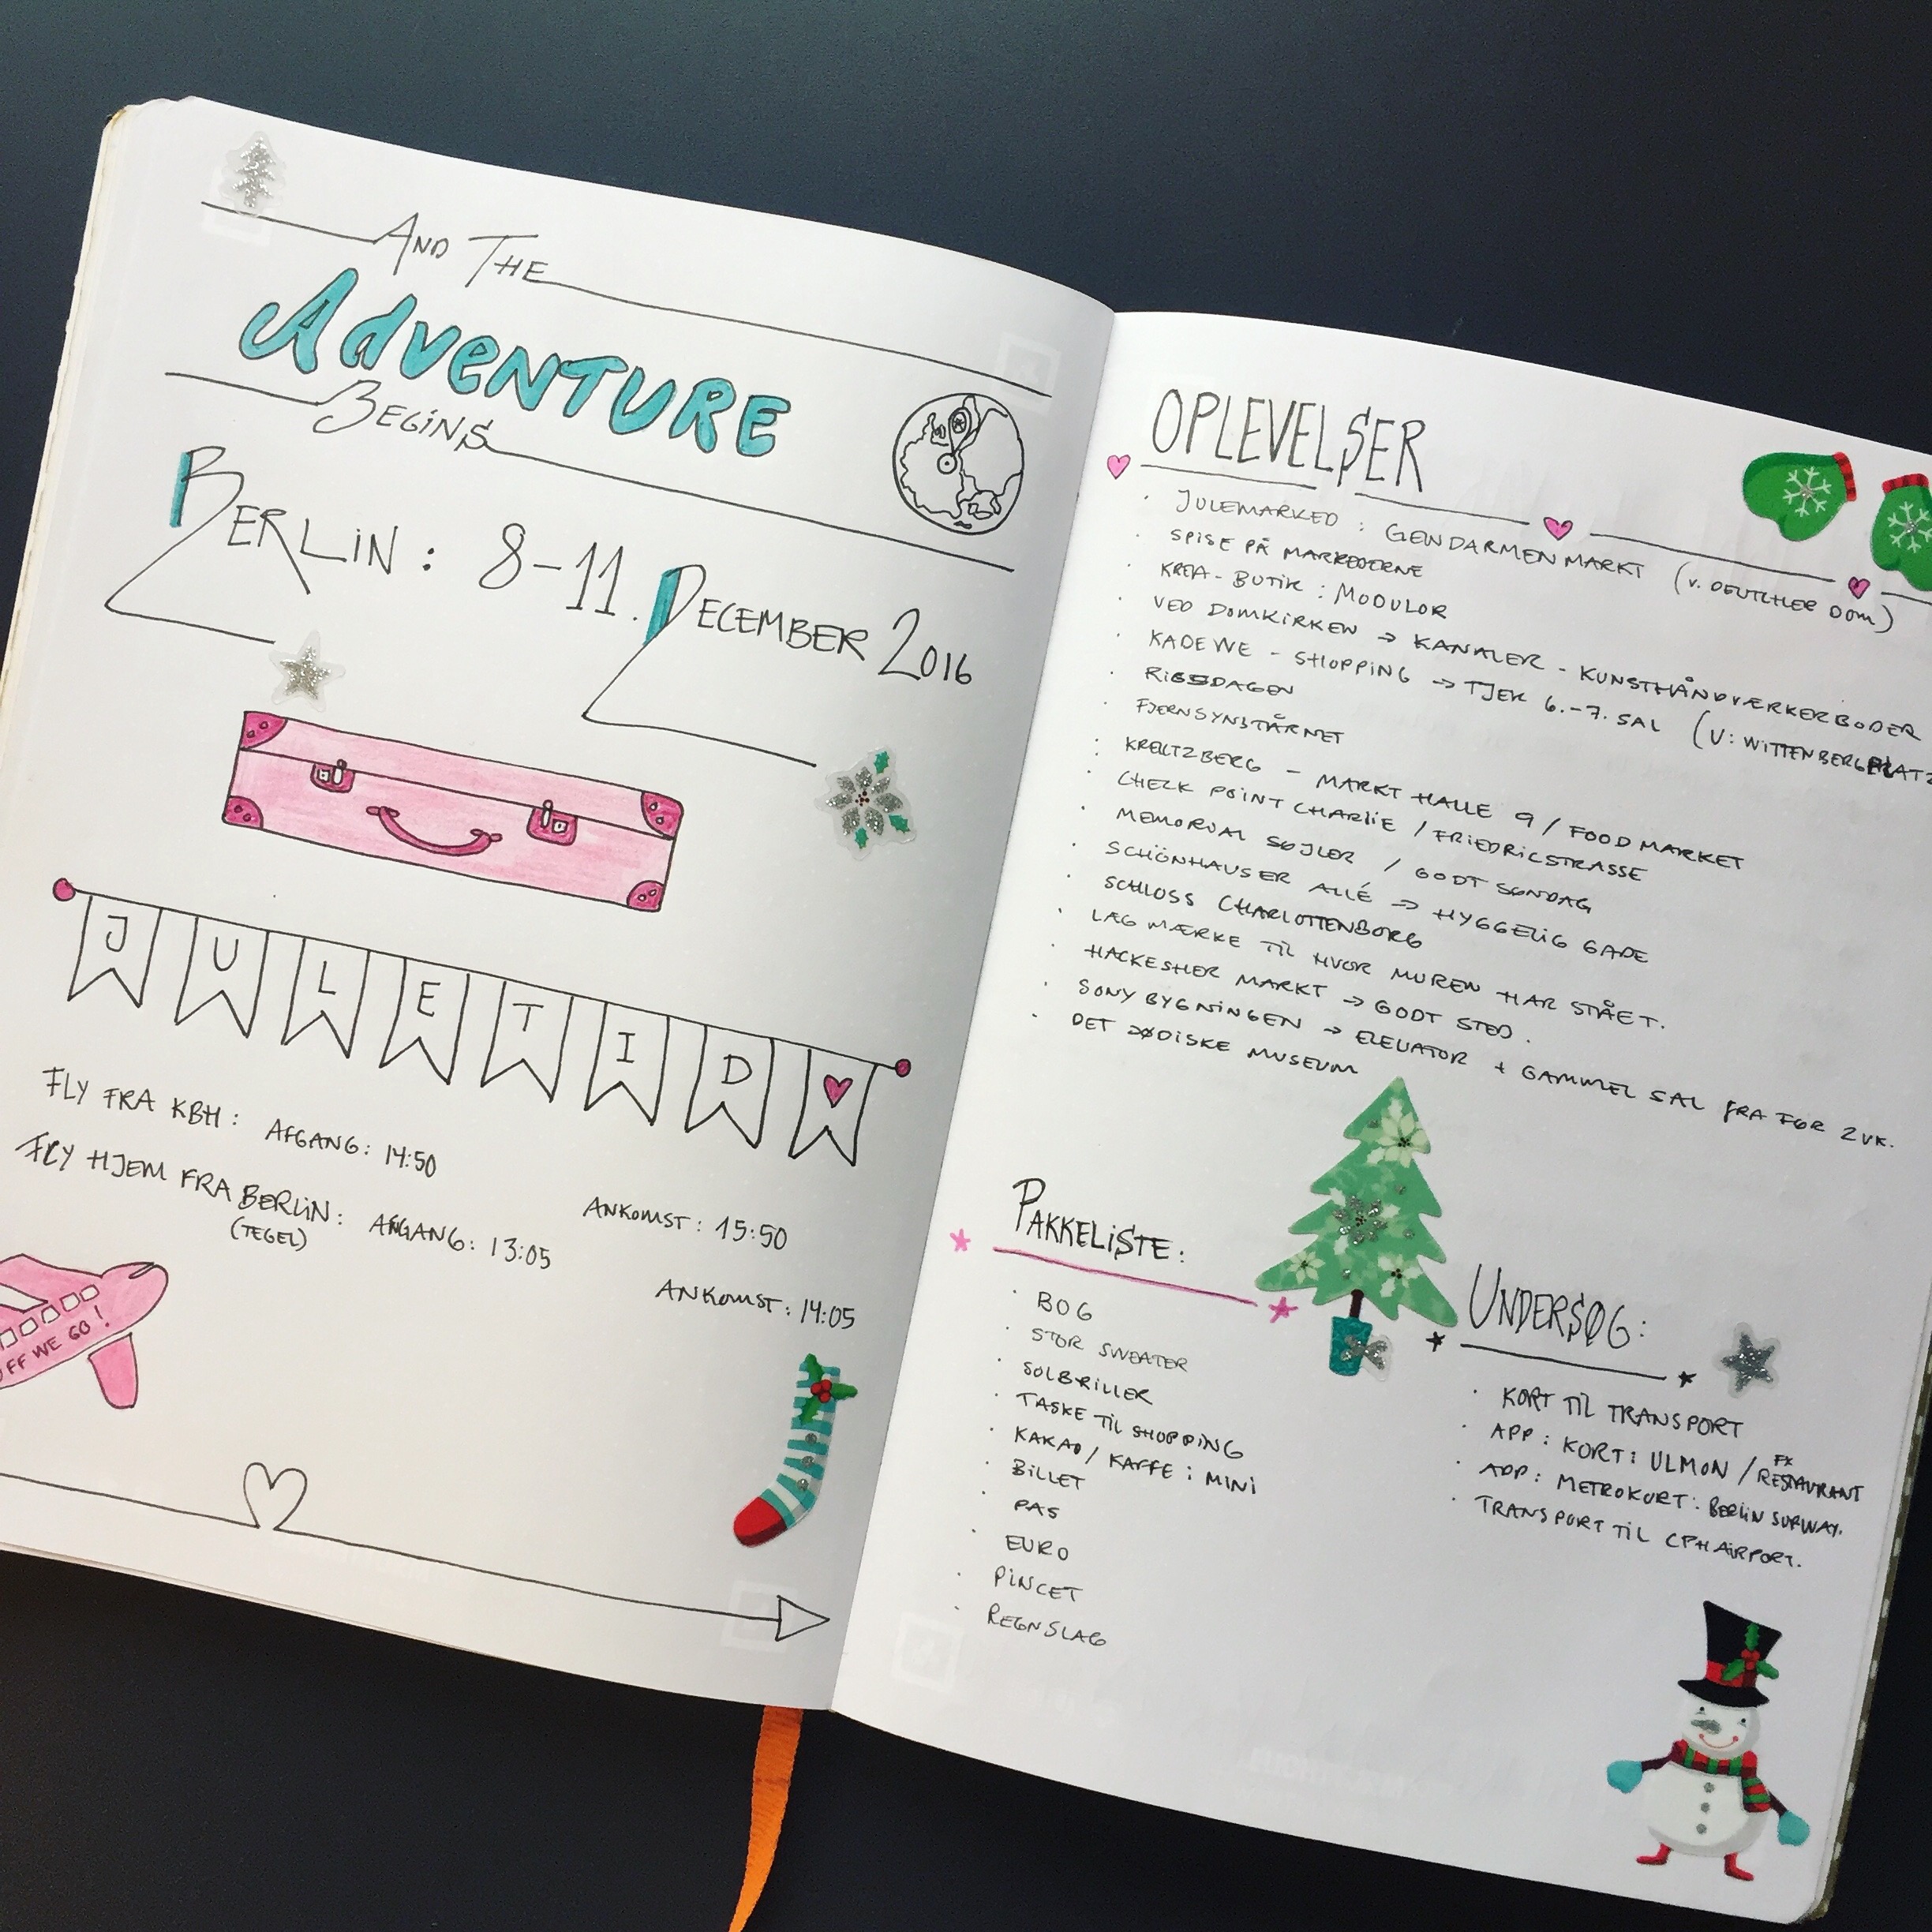 AND THE
ADVENTURE
BEGINS
BERLIN: 8-11. DECEMBER 2016
JULETID
FLY FRA KBH: AFGANG: 14:50 ANKOMST: 15:50
FLY HJEM FRA BERLIN: AFGANG: 13:05 ANKOMST: 14:05
(TEGEL)
OFF WE GO!
OPLEVELSER
· JULEMARKED: GENDARMENMARKT (V. DEUTCHER DOM)
· SPISE PÅ MARKEDERNE
· KREA-BUTIK: MODULOR
· VED DOMKIRKEN → KANALER - KUNSTHÅNDVÆRKERBODER
· KADEWE - SHOPPING → TJEK 6.-7. SAL (V: WITTENBERGPLATZ
· RIGSDAGEN
· FJERNSYNSTÅRNET
· KREUTZBERG - MARKT HALLE 9 / FOOD MARKET
· CHECK POINT CHARLIE / FRIEDRICSTRASSE
· MEMORIAL SØJLER / GODT SØNDAG
· SCHÖNHAUSER ALLÉ → HYGGELIG GADE
· SCHLOSS CHARLOTTENBORG
· LÆG MÆRKE TIL HVOR MUREN HAR STÅET.
· HACKESHER MARKT → GODT STED.
· SONY BYGNINGEN → ELEVATOR + GAMMEL SAL FRA FØR 2VK.
· DET JØDISKE MUSEUM
PAKKELISTE:
· BOG
· STOR SWEATER
· SOLBRILLER
· TASKE TIL SHOPPING
· KAKAO / KAFFE I MINI
· BILLET
· PAS
· EURO
· PINCET
· REGNSLAG
UNDERSØG:
· KORT TIL TRANSPORT
· APP: KORT: ULMON / FX RESTAURANT
· APP: METROKORT: BERLIN SUBWAY.
· TRANSPORT TIL CPH AIRPORT.